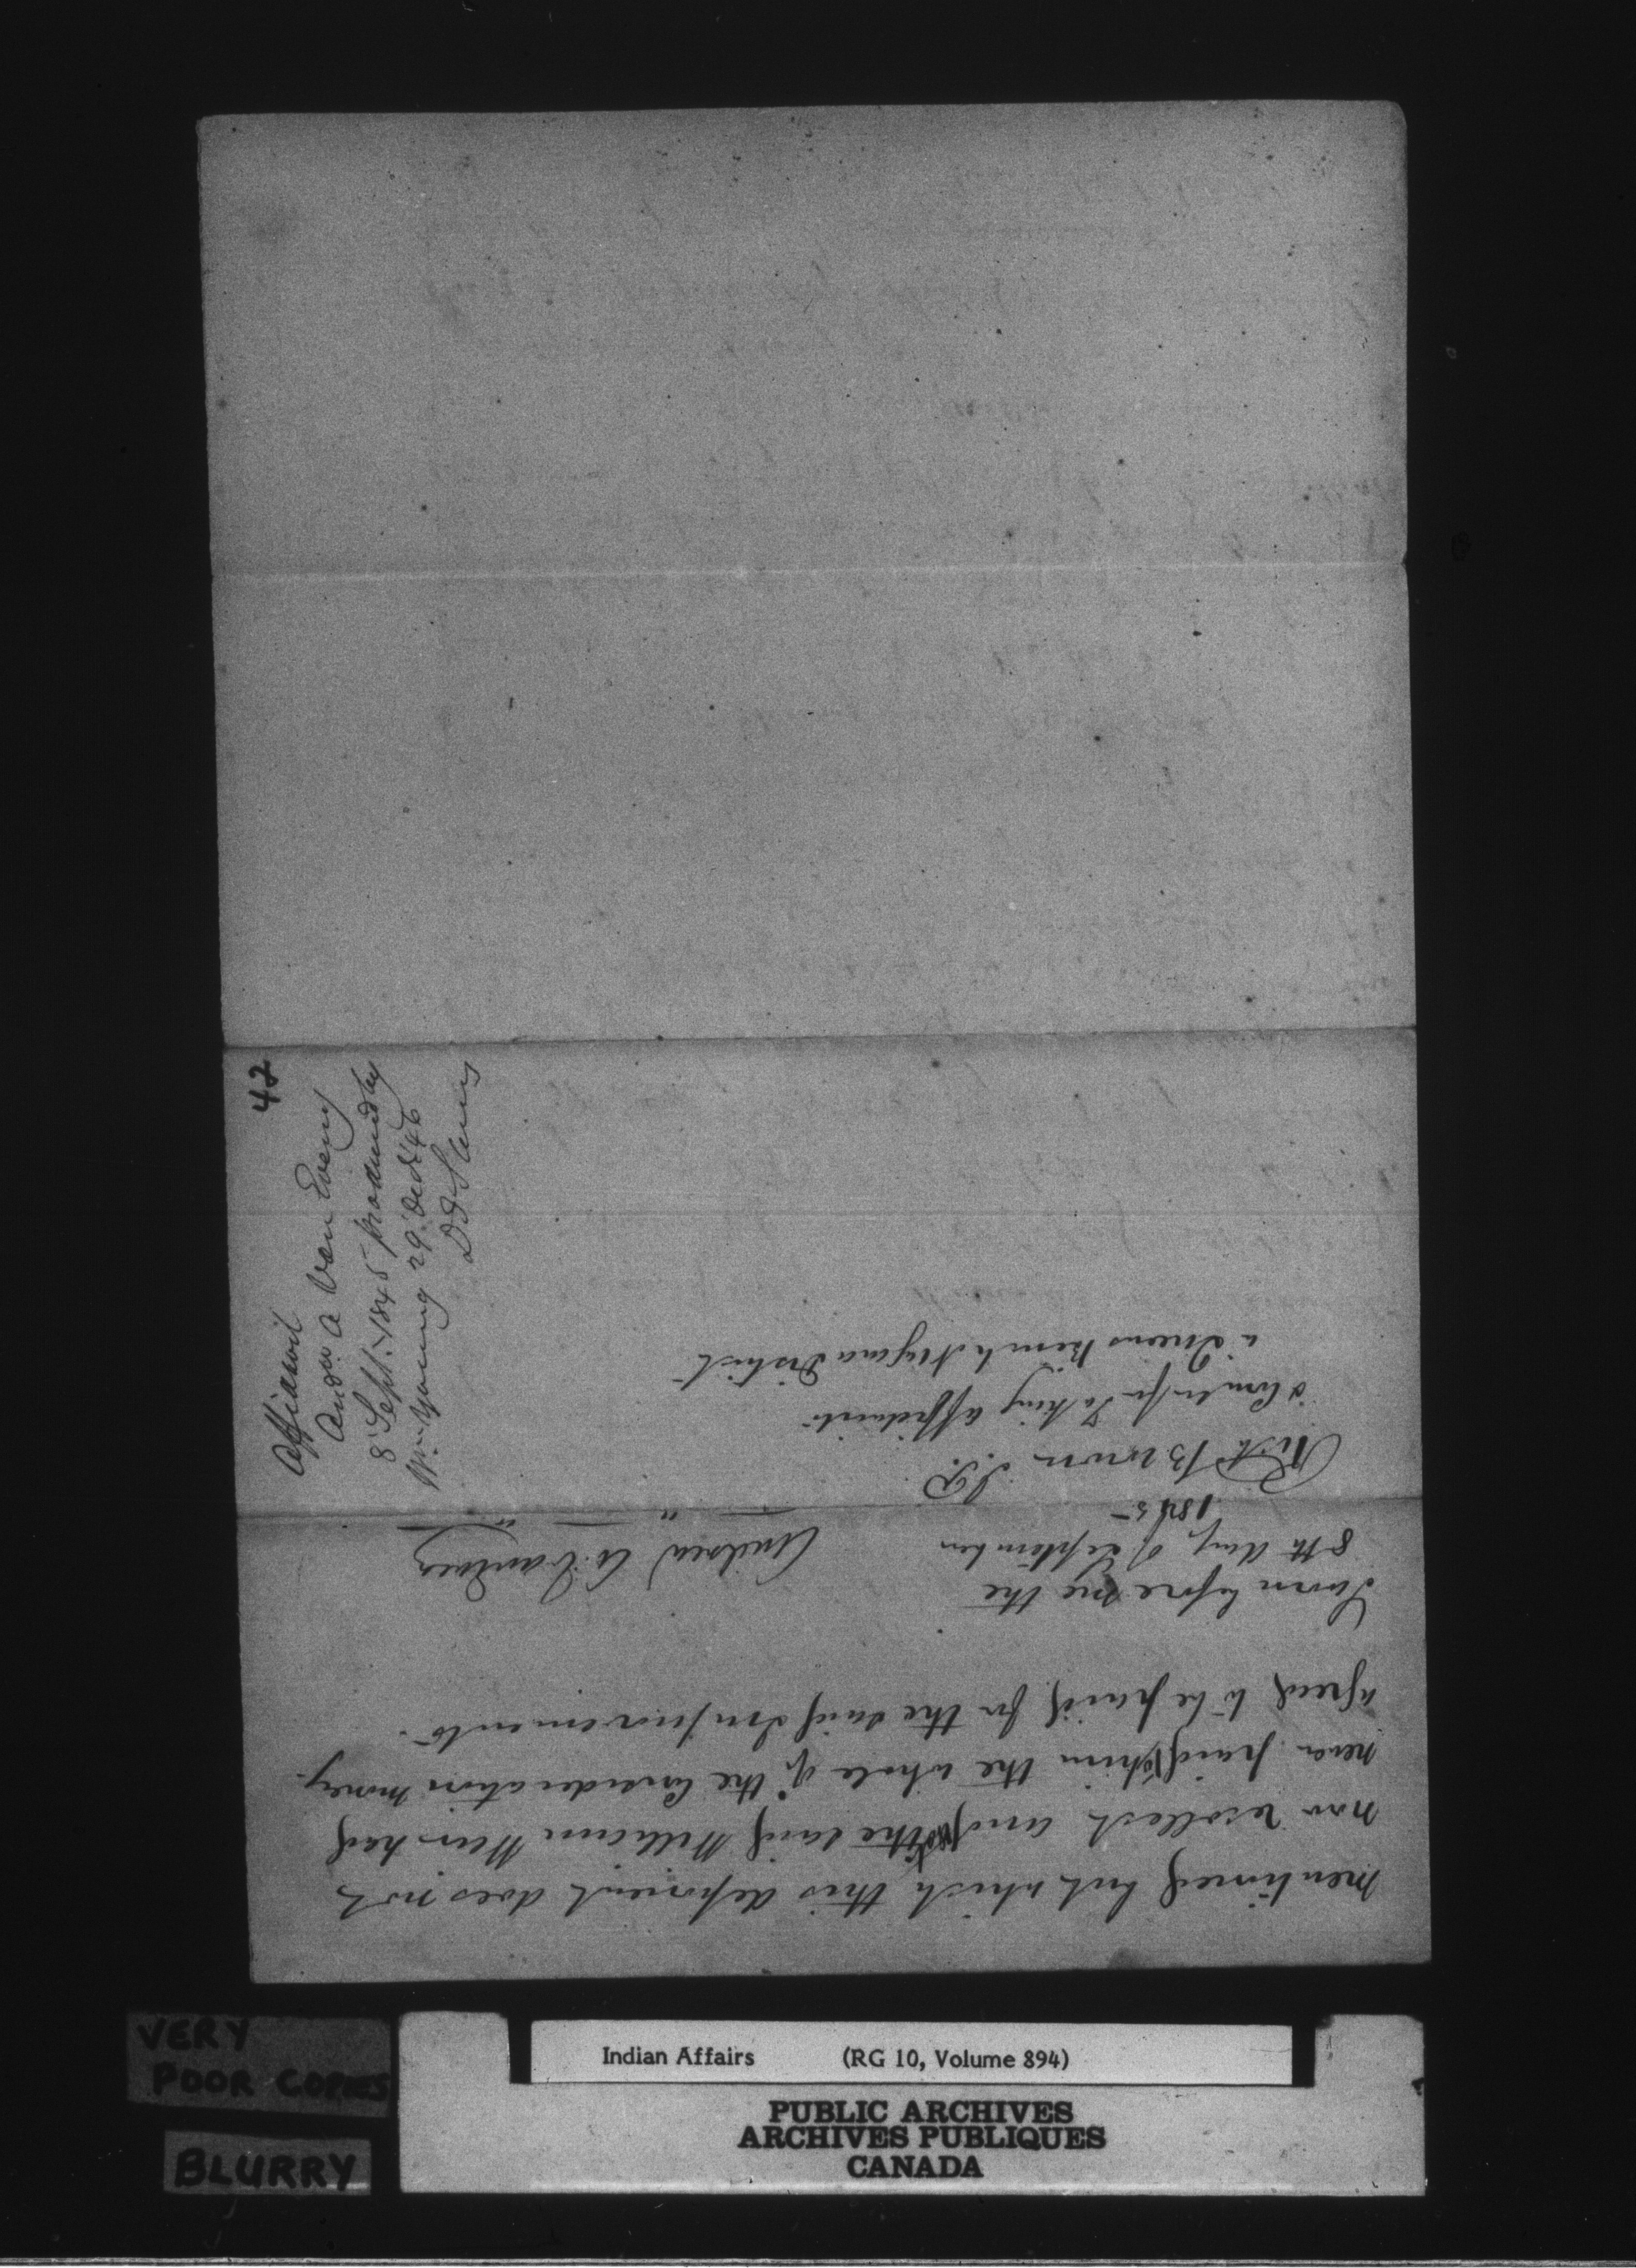 mentioned but which this deponent does not
now recollect and the said William Weir had
never paid him the whole of the Consideration money
agreed to be paid for the said Improvements.
Sworn before me the
8th day of September
1845
Andrew A. Vanevery
Richd Brown J.P.
a Comr for taking affidavits
in Queens Bench Niagara District
42
Affidavit
Andw A Van Every
8 Sept. 1845 produced by
Wm Young 29 Oct 1846
Indian Affairs (RG 10, Volume 894)
PUBLIC ARCHIVES
ARCHIVES PUBLIQUES
CANADA
VERY
POOR COPIES
BLURRY